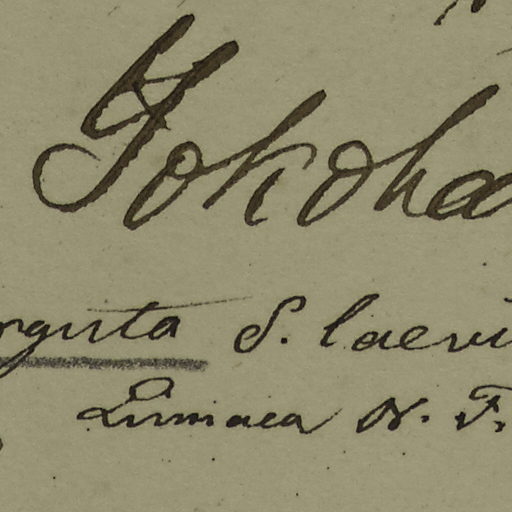 Yokoha
ngusta S. laevi
Limnaea N. F.